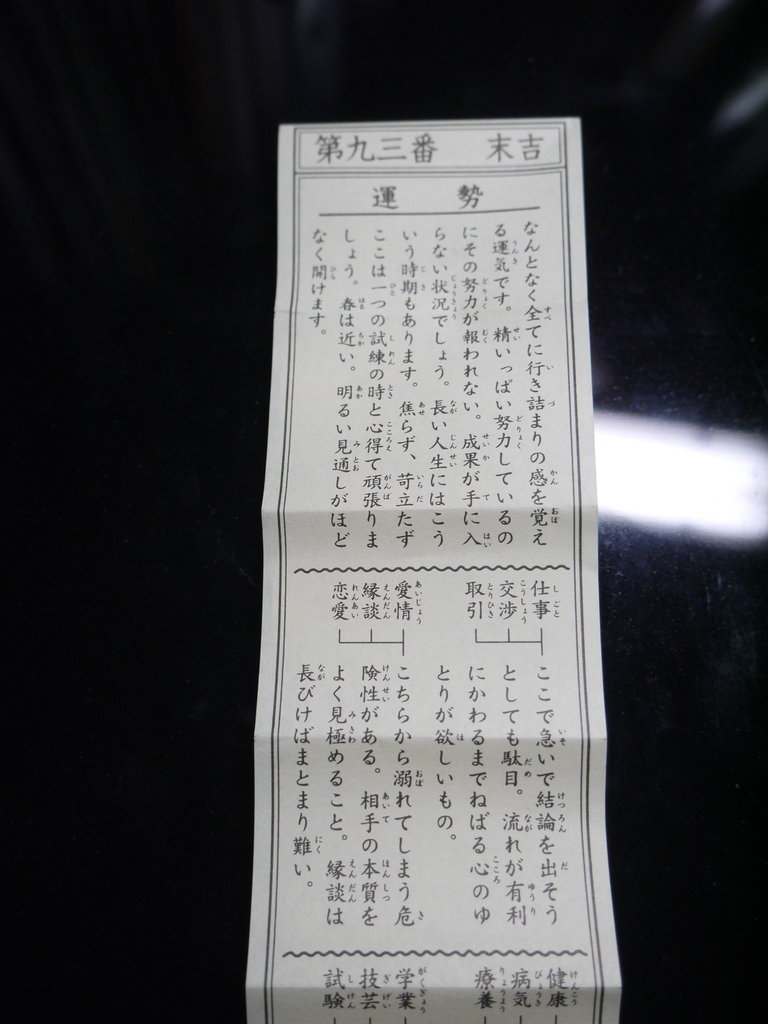 第九三番　末吉
運　勢
なんとなく全てに行き詰まりの感を覚え
る運気です。精いっぱい努力しているの
にその努力が報われない。成果が手に入
らない状況でしょう。長い人生にはこう
いう時期もあります。焦らず、苛立たず
ここは一つの試練の時と心得て頑張りま
しょう。春は近い。明るい見通しがほど
なく開けます。
仕事
交渉
取引
ここで急いで結論を出そう
としても駄目。流れが有利
にかわるまでねばる心のゆ
とりが欲しいもの。
愛情
縁談
恋愛
こちらから溺れてしまう危
険性がある。相手の本質を
よく見極めること。縁談は
長びけばまとまり難い。
健康
病気
療養
学業
技芸
試験